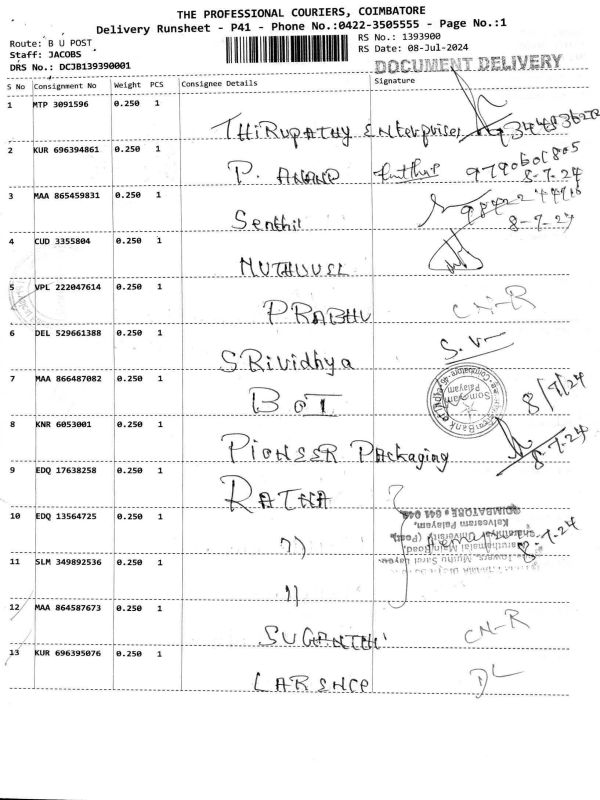 THE PROFESSIONAL COURIERS, COIMBATORE
Delivery Runsheet - P41 - Phone No.:0422-3505555 - Page No.:1
Route: B U POST
RS No.: 1393900
Staff: JACOBS
RS Date: 08-Jul-2024
DRS No.: DCJB139390001
DOCUMENT DELIVERY
S No Consignment No Weight PCS Consignee Details Signature
1 MTP 3091596 0.250 1
THiRupathy Enterprises
2 KUR 696394861 0.250 1
P. ANAND 9790601805
8-7-24
3 MAA 865459831 0.250 1
Senthil
8-7-24
4 CUD 3355804 0.250 1
MUTHUVEL
5 VPL 222047614 0.250 1
PRABHU CN-R
6 DEL 529661388 0.250 1
SRividhya S.V
7 MAA 866487082 0.250 1
BOI 8/7/24
Somayam
Palayam
8 KNR 6053001 0.250 1
PIONEER Packaging 8-7-24
9 EDQ 17638258 0.250 1
RATHA
10 EDQ 13564725 0.250 1
COIMBATORE - 641 046
Kalveeram Palayam,
Bharathiyar University (Post),
Maruthamalai Main Road,
8-7-24
11
11 SLM 349892536 0.250 1
11
12 MAA 864587673 0.250 1
SUGANTHI CN-R
13 KUR 696395076 0.250 1
LARENCE DL